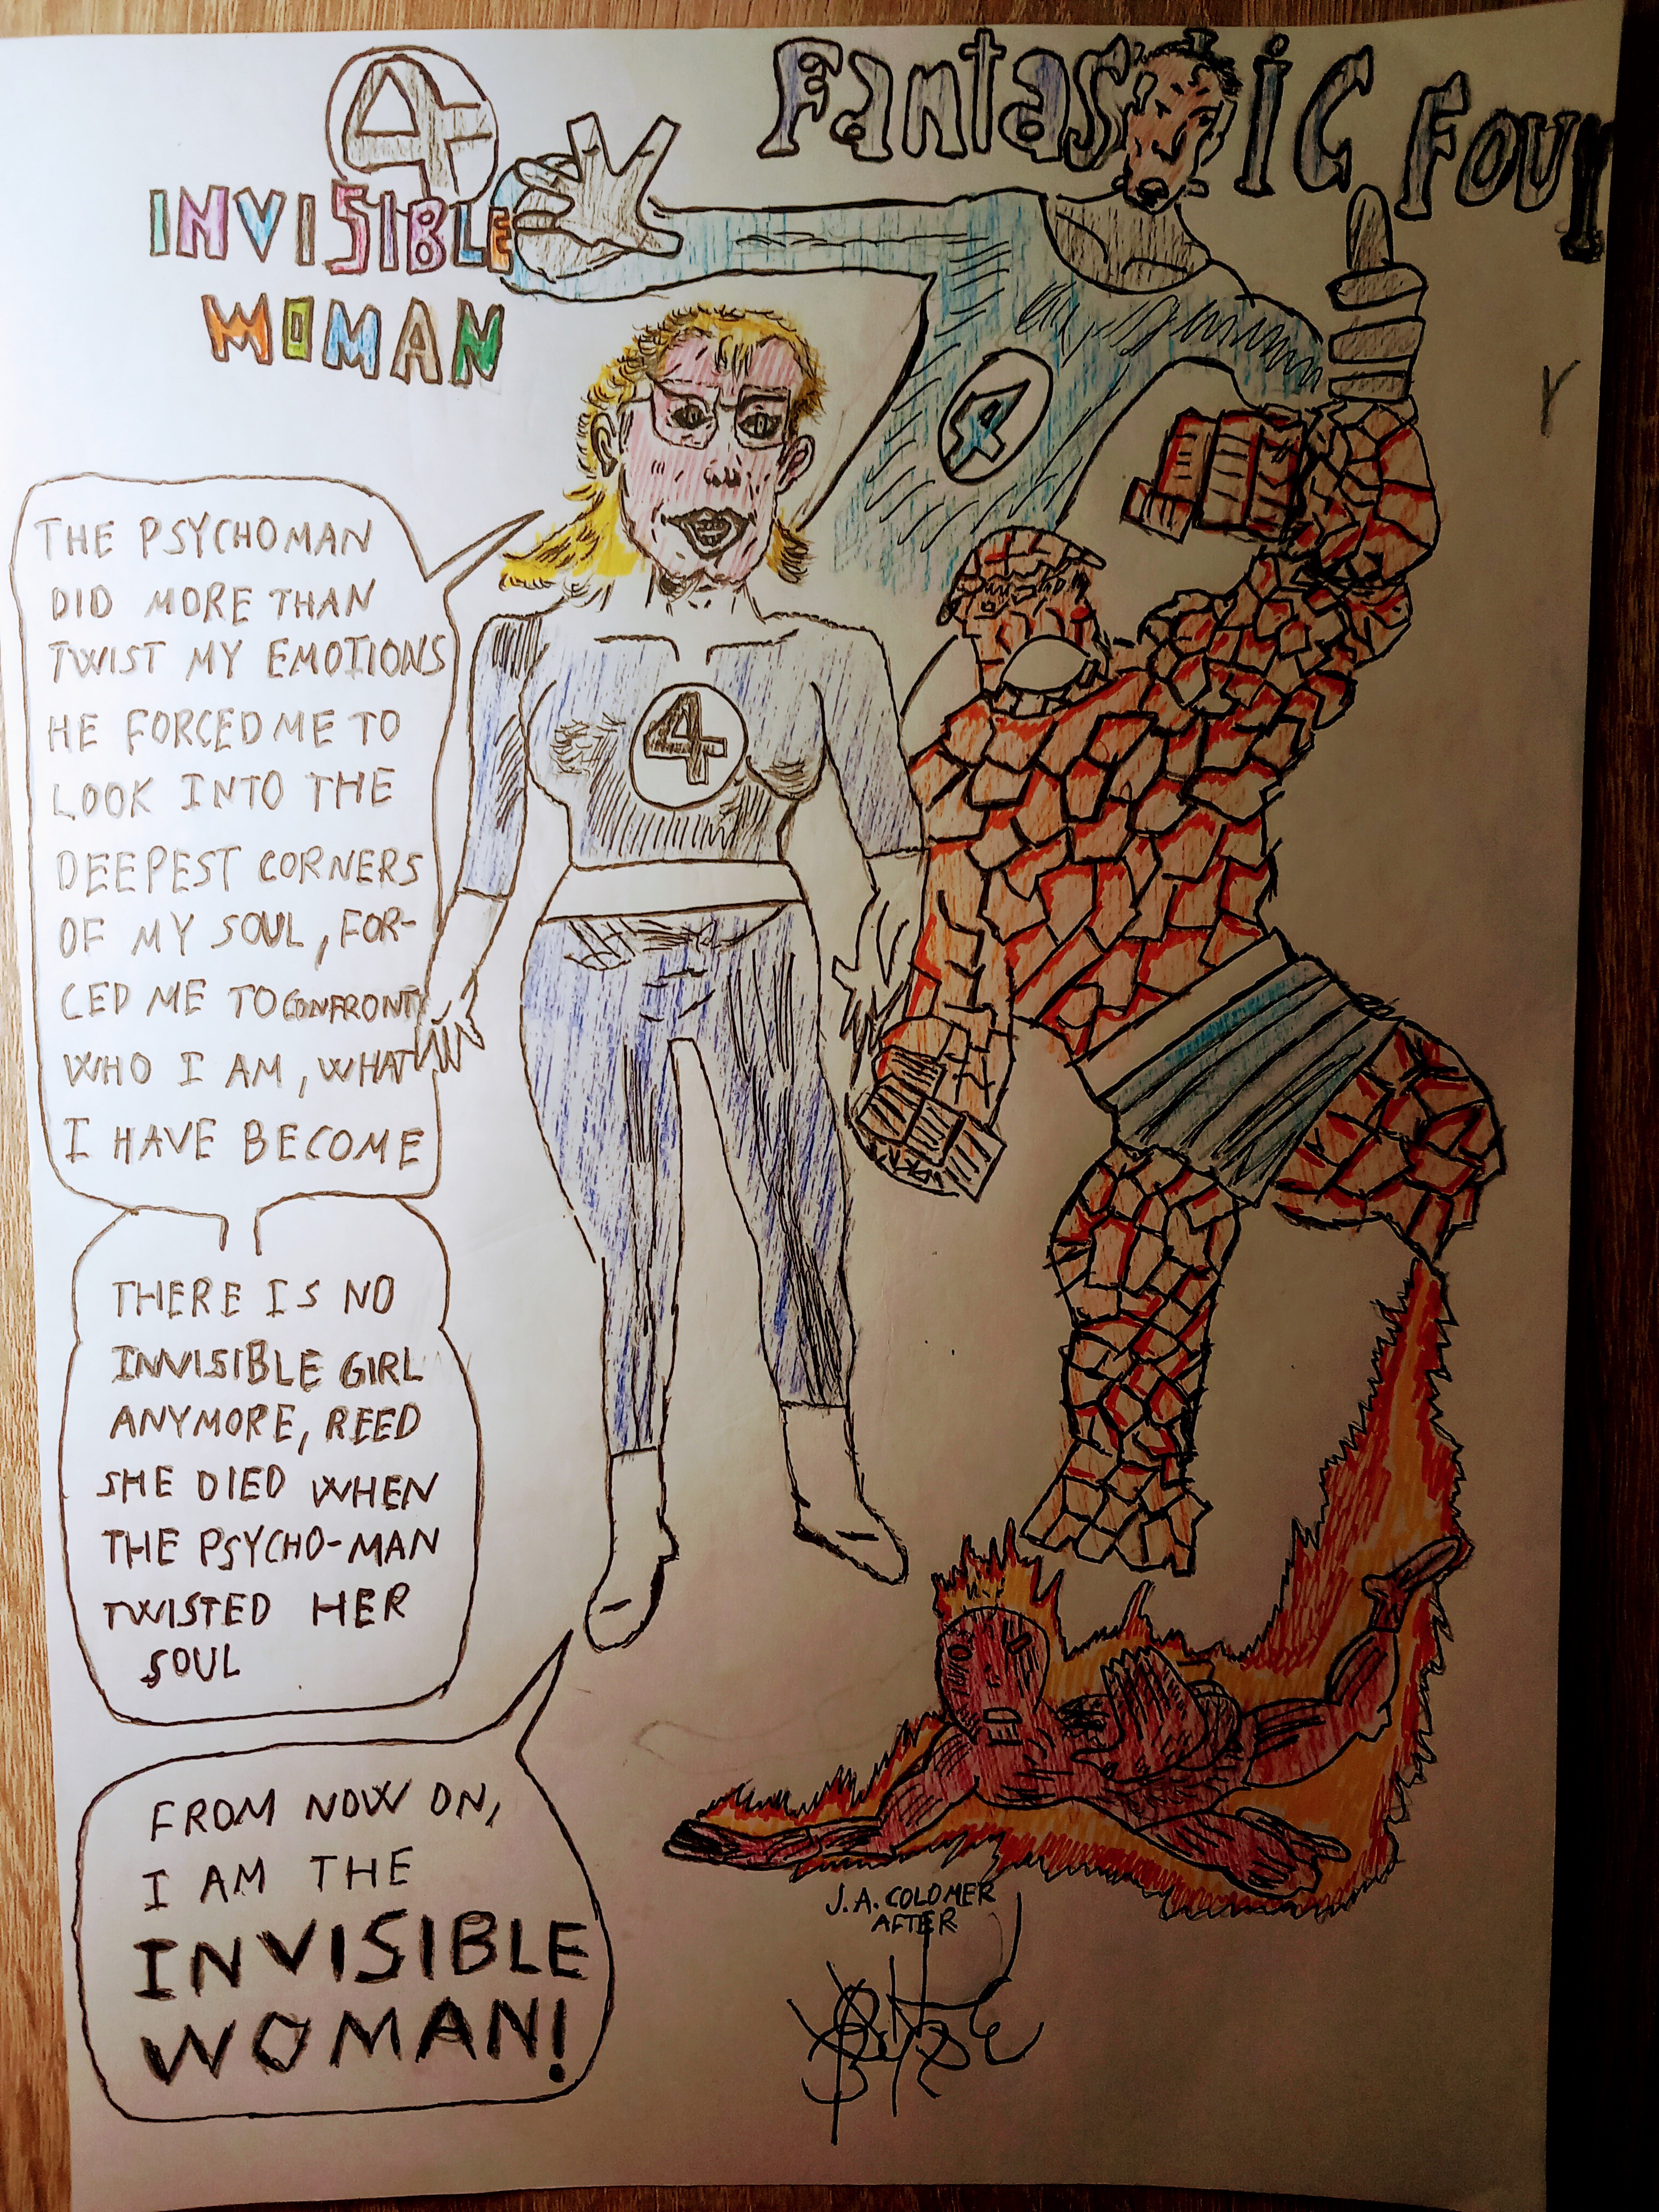 4
Fantastic Four
INVISIBLE
WOMAN
4
4
THE PSYCHOMAN
DID MORE THAN
TWIST MY EMOTIONS
HE FORCED ME TO
LOOK INTO THE
DEEPEST CORNERS
OF MY SOUL, FOR-
CED ME TO CONFRONT
WHO I AM, WHAT
I HAVE BECOME
THERE IS NO
INVISIBLE GIRL
ANYMORE, REED
SHE DIED WHEN
THE PSYCHO-MAN
TWISTED HER
SOUL
FROM NOW ON,
I AM THE
INVISIBLE
WOMAN!
J.A. COLOMER
AFTER